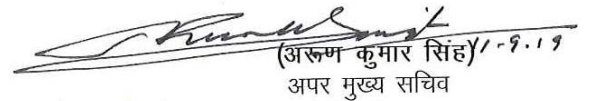 (अरूण कुमार सिंह) 11-9-19
अपर मुख्य सचिव